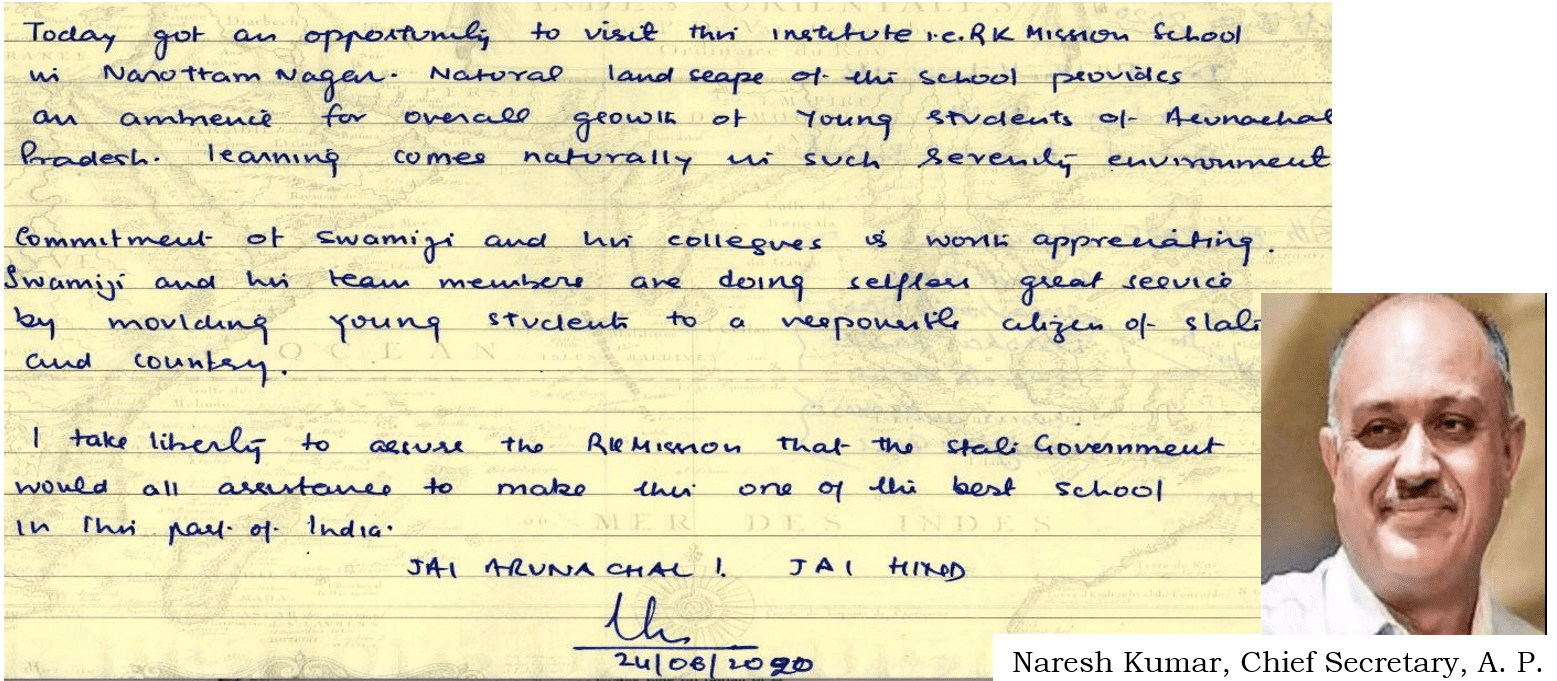 Today got an opportunity to visit this institute i.e. RK Mission School
in Narottam Nagar. Natural landscape of this school provides
an ambience for overall growth of young students of Arunachal
Pradesh. learning comes naturally in such serenity environment
Commitment of Swamiji and his collegues is worth appreciating.
Swamiji and his team members are doing selfless great service
by moulding young students to a responsible citizen of state
and country.
I take liberty to assure the RK Mission that the state Government
would all assistance to make this one of the best school
in this part of India.
JAI ARUNACHAL! JAI HIND
24/08/2020
OCEAN
MER DES INDES
Naresh Kumar, Chief Secretary, A. P.